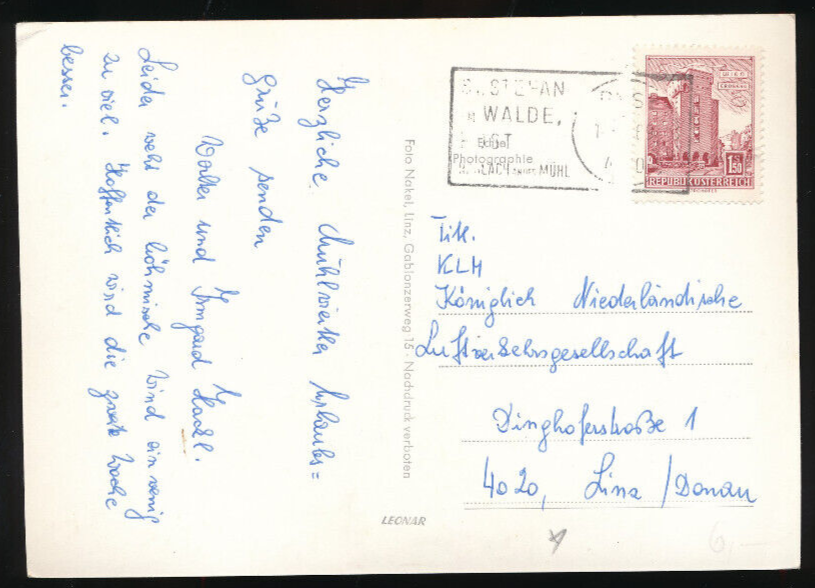 Herzliche Mühlviertler Urlaubs=
grüße senden
Walter und Irmgard
Leider weht der böhmische Wind ein wenig
zu viel. Hoffentlich wird die zweite Woche
besser.
Foto Nakel, Linz, Gablonzerweg 15 · Nachdruck verboten
ST. STEFAN
WALDE,
Echte
Photographie
MÜHL
REPUBLIK ÖSTERREICH
1.50
Tit.
KLM
Königlich Niederländische
Luftverkehrsgesellschaft
Dinghoferstraße 1
4020, Linz / Donau
LEONAR
6,-